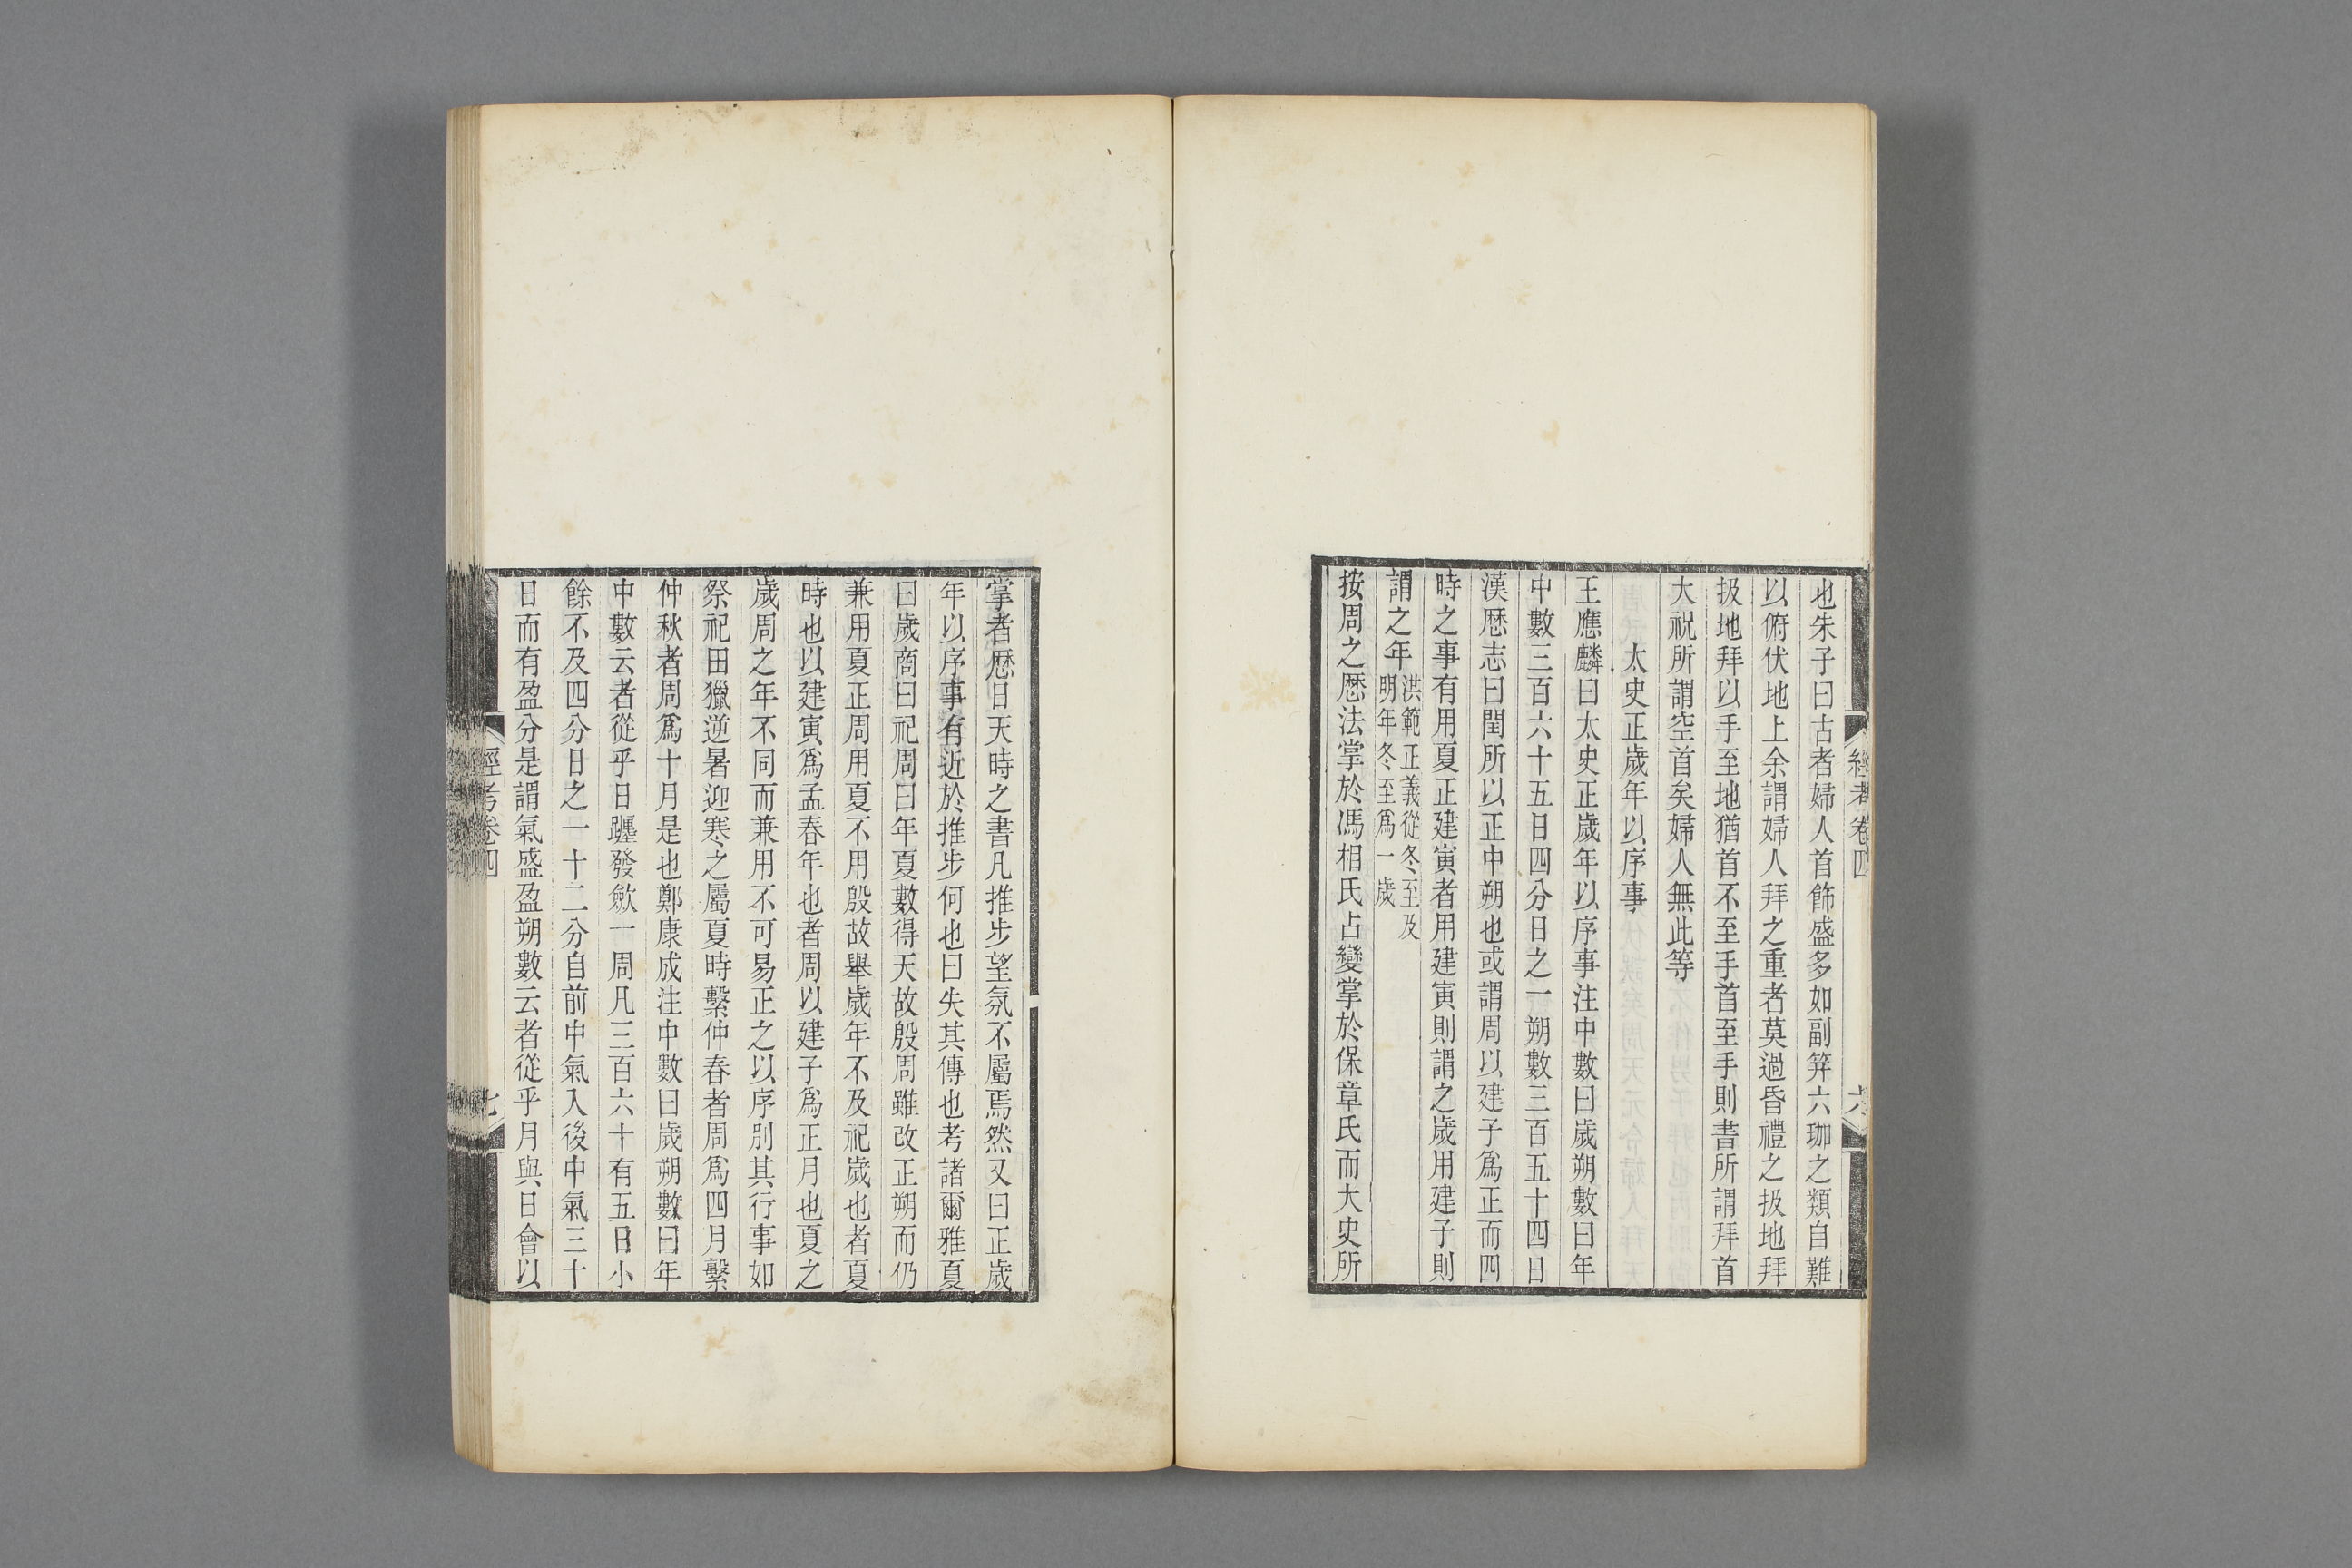 經考卷四
六
也朱子曰古者婦人首飾盛多如副笄六珈之類自難
以俯伏地上余謂婦人拜之重者莫過昏禮之扱地拜
扱地拜以手至地猶首不至手首至手則書所謂拜首
大祝所謂空首矣婦人無此等
太史正歲年以序事
王應麟曰太史正歲年以序事注中數曰歲朔數曰年
中數三百六十五日四分日之一朔數三百五十四日
漢厯志曰閏所以正中朔也或謂周以建子爲正而四
時之事有用夏正建寅者用建寅則謂之歲用建子則
謂之年洪範正義從冬至及
明年冬至爲一歲
按周之厯法掌於馮相氏占變掌於保章氏而大史所
掌者厯日天時之書凡推步望氛不屬焉然又曰正歲
年以序事有近於推步何也曰失其傳也考諸爾雅夏
曰歲商曰祀周曰年夏數得天故殷周雖改正朔而仍
兼用夏正周用夏不用殷故舉歲年不及祀歲也者夏
時也以建寅爲孟春年也者周以建子爲正月也夏之
歲周之年不同而兼用不可易正之以序別其行事如
祭祀田獵逆暑迎寒之屬夏時繫仲春者周爲四月繫
仲秋者周爲十月是也鄭康成注中數曰歲朔數曰年
中數云者從乎日躔發斂一周凡三百六十有五日小
餘不及四分日之一十二分自前中氣入後中氣三十
日而有盈分是謂氣盛盈朔數云者從乎月與日會以
經考卷四
七